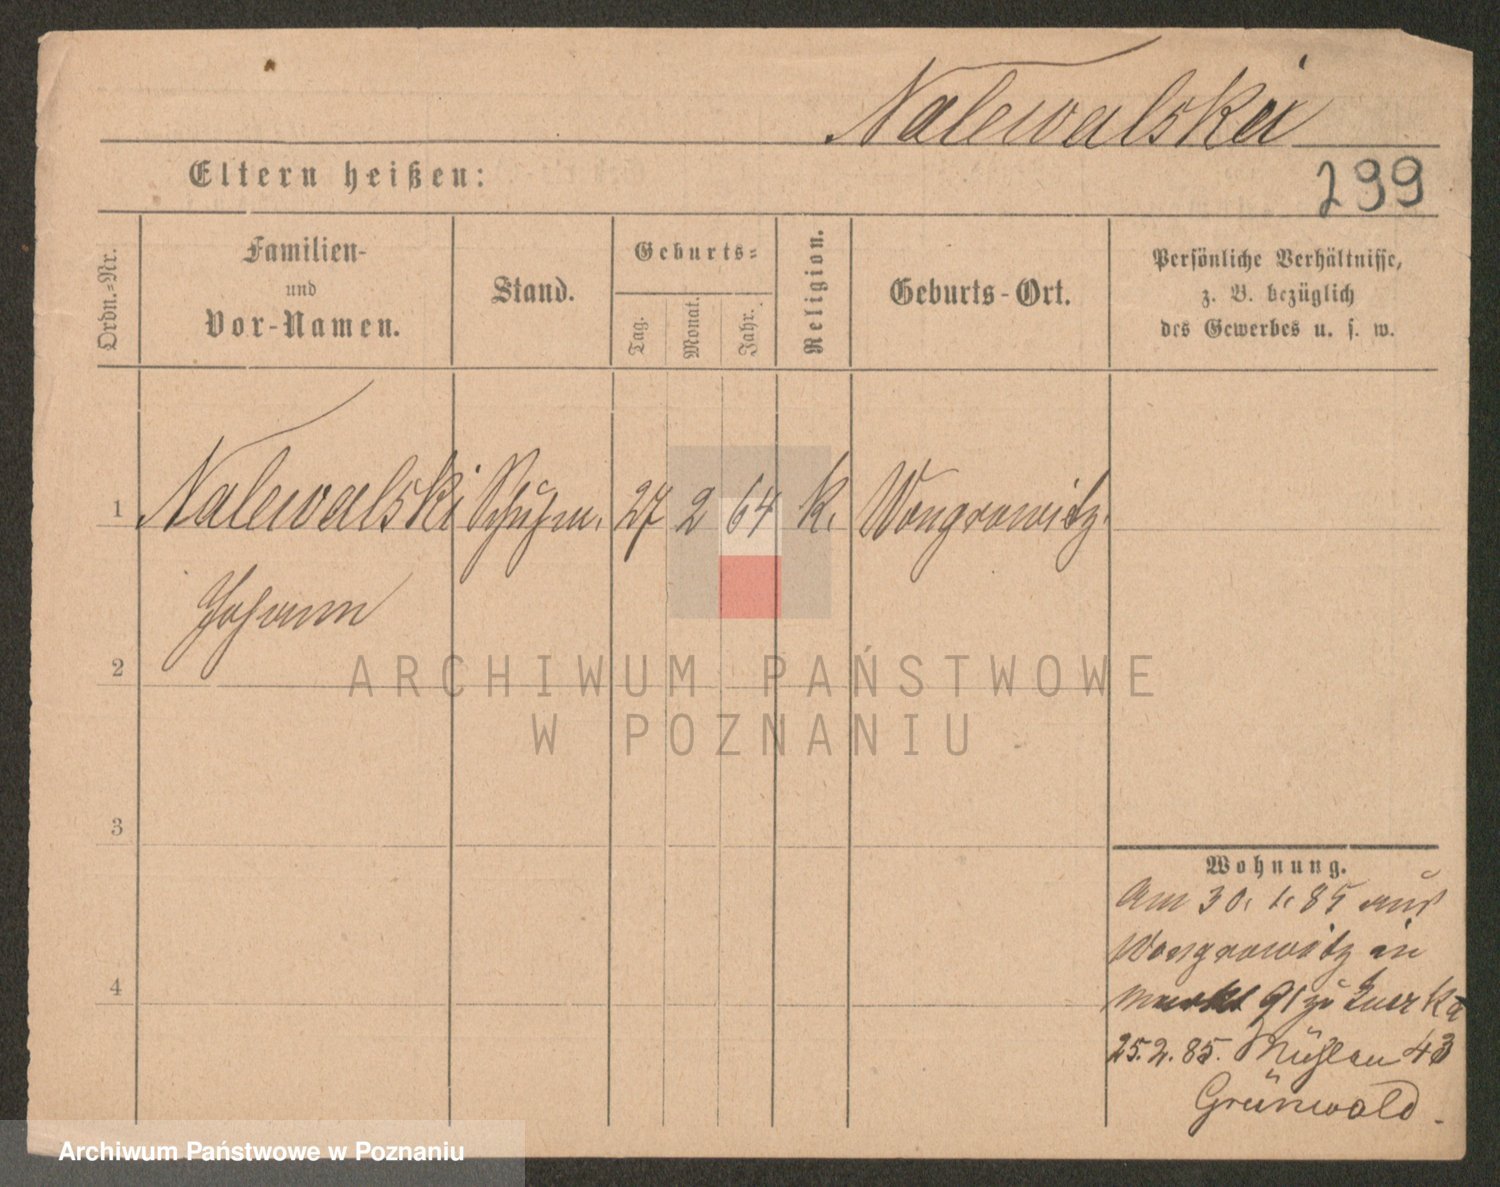 Nalewalski
Eltern heißen:
299
Ordn.=Nr.
Familien-
und
Vor-Namen.
Stand.
Geburts=
Tag.
Monat.
Jahr.
Religion.
Geburts-Ort.
Persönliche Verhältnisse,
z. B. bezüglich
des Gewerbes u. s. w.
1 Nalewalski Schuhm. 27 2 64 k. Wongrowitz.
Johann
2
3
4
Wohnung.
Am 30. 1. 85 aus
Wongrowitz in
Markt 91 zu
25. 2. 85. Mühlen 43
Grünwald.
ARCHIWUM PAŃSTWOWE
W POZNANIU
Archiwum Państwowe w Poznaniu